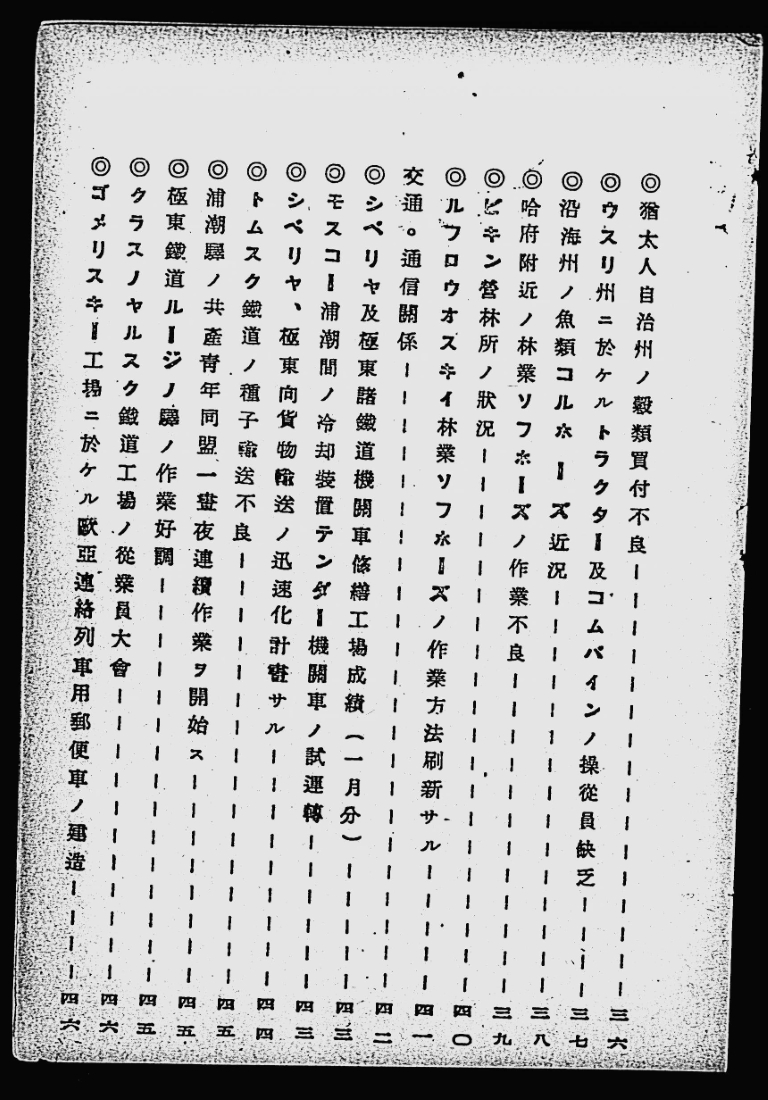 ◎猶太人自治州ノ穀類買付不良――――――――――――――――三六
◎ウスリ州ニ於ケルトラクター及コムバインノ操従員缺乏――――三七
◎沿海州ノ魚類コルホーズ近況――――――――――――――――三八
◎哈府附近ノ林業ソフホーズノ作業不良――――――――――――三九
◎ビキン營林所ノ狀况――――――――――――――――――――四〇
◎ルフロウオスキイ林業ソフホーズノ作業方法刷新サル―――――四一
交通。通信關係―――――――――――――――――――――――四二
◎シベリヤ及極東諸鐵道機關車修繕工場成績(一月分)―――――四三
◎モスコー浦潮間ノ冷却装置テンダー機關車ノ試運轉――――――四三
◎シベリヤ、極東向貨物輸送ノ迅速化計畫サル―――――――――四四
◎トムスク鐵道ノ種子輸送不良――――――――――――――――四五
◎浦潮驛ノ共產青年同盟一晝夜連續作業ヲ開始ス――――――――四五
◎極東鐵道ルージノ驛ノ作業好調―――――――――――――――四五
◎クラスノヤルスク鐵道工場ノ從業員大會―――――――――――四六
◎ゴメリスキー工場ニ於ケル歐亞連絡列車用郵便車ノ建造――――四六